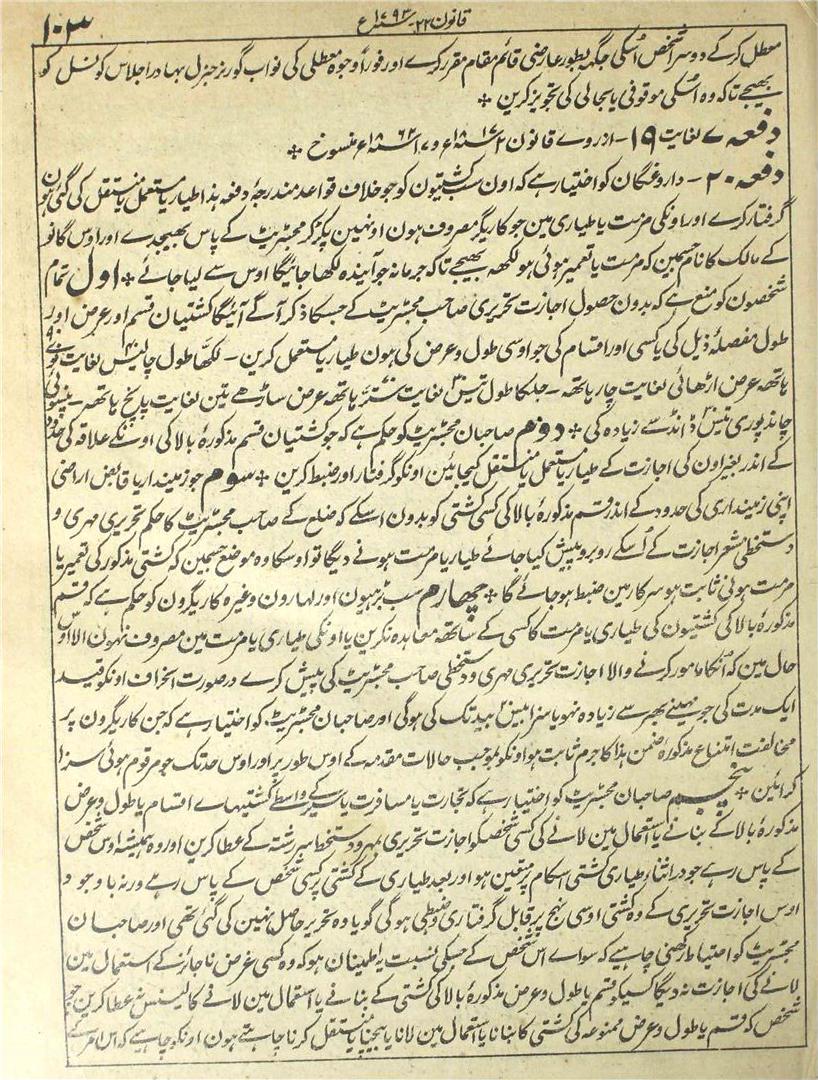 ۱۰۳
قانون ۲۲ ۱۷۹۳ع
معطل کرکے دوسرا شخص اُسکی جگہہ بطور عارضی قائم مقام مقرر کرے اور فوراً وجوہ معطلی کی نواب گورنر جنرل بہادر اجلاس کونسل کو
بھیجے تاکہ وہ اُسکی موقوفی یا بحالی کی تجویز کرین *
دفعہ ۷ لغایت ۱۹ - از روے قانون ۱۸۱۷ء و ۱۷ ۱۸۶۲ء منسوخ *
دفعہ ۲۰ - داروغگان کو اختیار ہے کہ اون سب کشتیون کو جو خلاف قواعد مندرجۂ دفعہ ہذا طیار یا مستعمل یا منتقل کی گئی ہون
گرفتار کرے اور اونکی مرمت یا طیاری مین جو کاریگر مصروف ہون اونہین پکڑ کر مجسٹریٹ کے پاس بھیجدے اور اوس گانو
کے مالک کا نام جسمین کہ مرمت یا تعمیر ہوئی ہو لکھہ بھیجے تاکہ جرمانہ جو آیندہ لکھا جائیگا اوس سے لیا جائے * اول تمام
شخصون کو منع ہے کہ بدون حصول اجازت تحریری صاحب مجسٹریٹ کے جسکا ذکر آگے آئیگا کشتیان قسم اور عرض اور
طول مفصلۂ ذیل کی یا کسی اور اقسام کی جو اوسی طول و عرض کی ہون طیار یا مستعمل کرین - لکھا طول چالیس لغایت نوے
ہاتھہ عرض اڑھائی لغایت چار ہاتھہ - جلکا طول تیس لغایت ستر ہاتھہ عرض ساڑھے تین لغایت پانچ ہاتھہ -
چاندپوری تیس ڈانڈ سے زیادہ کی * دوم صاحبان مجسٹریٹ کو حکم ہے کہ جو کشتیان قسم مذکورۂ بالا کی اونکے علاقہ کی حدود
کے اندر بغیر اون کی اجازت کے طیار یا مستعمل یا منتقل کیجائین اونکو گرفتار اور ضبط کرین * سوم جو زمیندار یا قابض اراضی
اپنی زمینداری کی حدود کے اندر قسم مذکورۂ بالا کی کسی کشتی کو بدون اسکے کہ ضلع کے صاحب مجسٹریٹ کا حکم تحریری مہری و
دستخطی مشعر اجازت کے اُسکے روبرو پیش کیا جائے طیار یا مرمت ہونے دیگا تو اوسکا وہ موضع جسمین کہ کشتی مذکور کی تعمیر یا
مرمت ہونی ثابت ہو سرکار مین ضبط ہو جائے گا * چہارم سب بڑہیون اور لہارون وغیرہ کاریگرون کو حکم ہے کہ قسم
مذکورۂ بالا کی کشتیون کی طیاری یا مرمت کا کسی کے ساتھہ معاہدہ نکرین یا اونکی طیاری یا مرمت مین مصروف نہون الا اوس
حال مین کہ اُنکا مامور کرنے والا اجازت تحریری مہری و دستخطی صاحب مجسٹریٹ کی پیش کرے در صورت انحراف اونکو قید
ایک مدت کی جو مہینے بھر سے زیادہ نہو یا سزا بیس بید تک کی ہوگی اور صاحبان مجسٹریٹ کو اختیار ہے کہ جن کاریگرون پر
مخالفت امتناع مذکورہ ضمن ہذا کا جرم ثابت ہو اونکو بموجب حالات مقدمہ کے اوس طور پر اور اوس حد تک جو مرقوم ہوئی سزا
کرائین * پنجم صاحبان مجسٹریٹ کو اختیار ہے کہ تجارت یا مسافرت یا سیر کے واسطے کشتیہاے اقسام یا طول و عرض
مذکورۂ بالا کے بنانے یا استعمال مین لانے کی کسی شخص کو اجازت تحریری بمہر و دستخط سررشتہ کے عطا کرین اور وہ ہمیشہ اوس شخص
کے پاس رہے جو در اثناء طیاری کشتی اس کام پر متعین ہو اور بعد طیاری کے کشتی پر کسی شخص کے پاس رہے ورنہ باوجود
اوس اجازت تحریری کے وہ کشتی اوسی نہج پر قابل گرفتاری و ضبطی ہوگی گویا وہ تحریر حاصل نہین کی گئی تھی اور صاحبان
مجسٹریٹ کو احتیاط رکھنی چاہیے کہ سواے اس شخص کے جسکی نسبت یہ اطمینان ہو کہ وہ کسی غرض ناجائز کے استعمال مین
لانے کی اجازت نہ دیگا کسیکو قسم یا طول و عرض مذکورۂ بالا کی کشتی کے بنانے یا استعمال مین لانے کا لیسنس نہ عطا کرین جو
شخص کہ قسم یا طول و عرض ممنوعہ کی کشتی کا بنانا یا استعمال مین لانا یا بیچنا یا منتقل کرنا چاہتے ہون اونکو چاہیے کہ اس امر کے